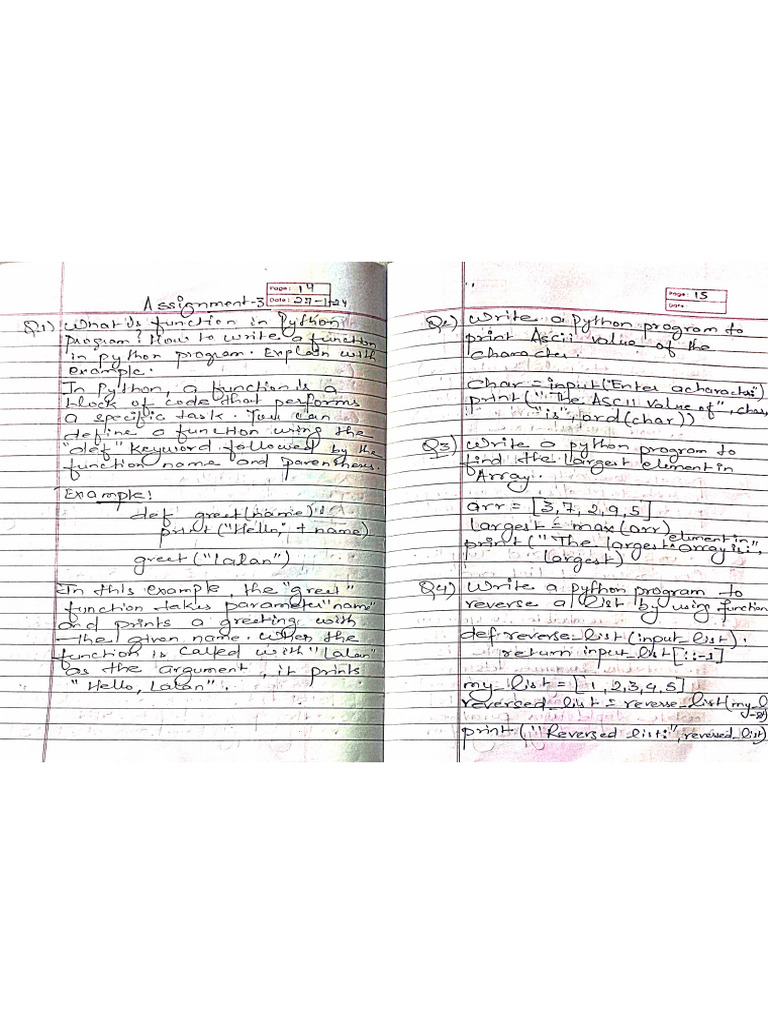 Page: 14
Assignment-3 Date: 27-1-24
Q1) What is function in Python
program? How to write a function
in python program. Explain with
example.
In Python, a function is a
block of code that performs
a specific task. You can
define a function using the
"def" keyword followed by the
function name and parentheses.
Example:
def greet(name):
print("Hello," + name)
greet("lalan")
In this example, the "greet"
function takes parameter "name"
and prints a greeting with
the given name. When the
function is called with "Lalan"
as the argument, it prints
"Hello, Lalan".
Page: 15
Date:
Q2) Write a python program to
print Ascii value of the
character.
Char = input("Enter a character:")
print("The ASCII value of", char,
"is", ord(char))
Q3) Write a python program to
find the largest element in
Array.
arr = [3, 7, 2, 9, 5]
largest = max(arr)
print("The largest element in array is:",
largest)
Q4) Write a python program to
reverse a list by using function
def reverse_list(input_list):
return input_list[::-1]
my_list = [1, 2, 3, 4, 5]
reversed_list = reverse_list(my_l
print("Reversed list:", reversed_list)